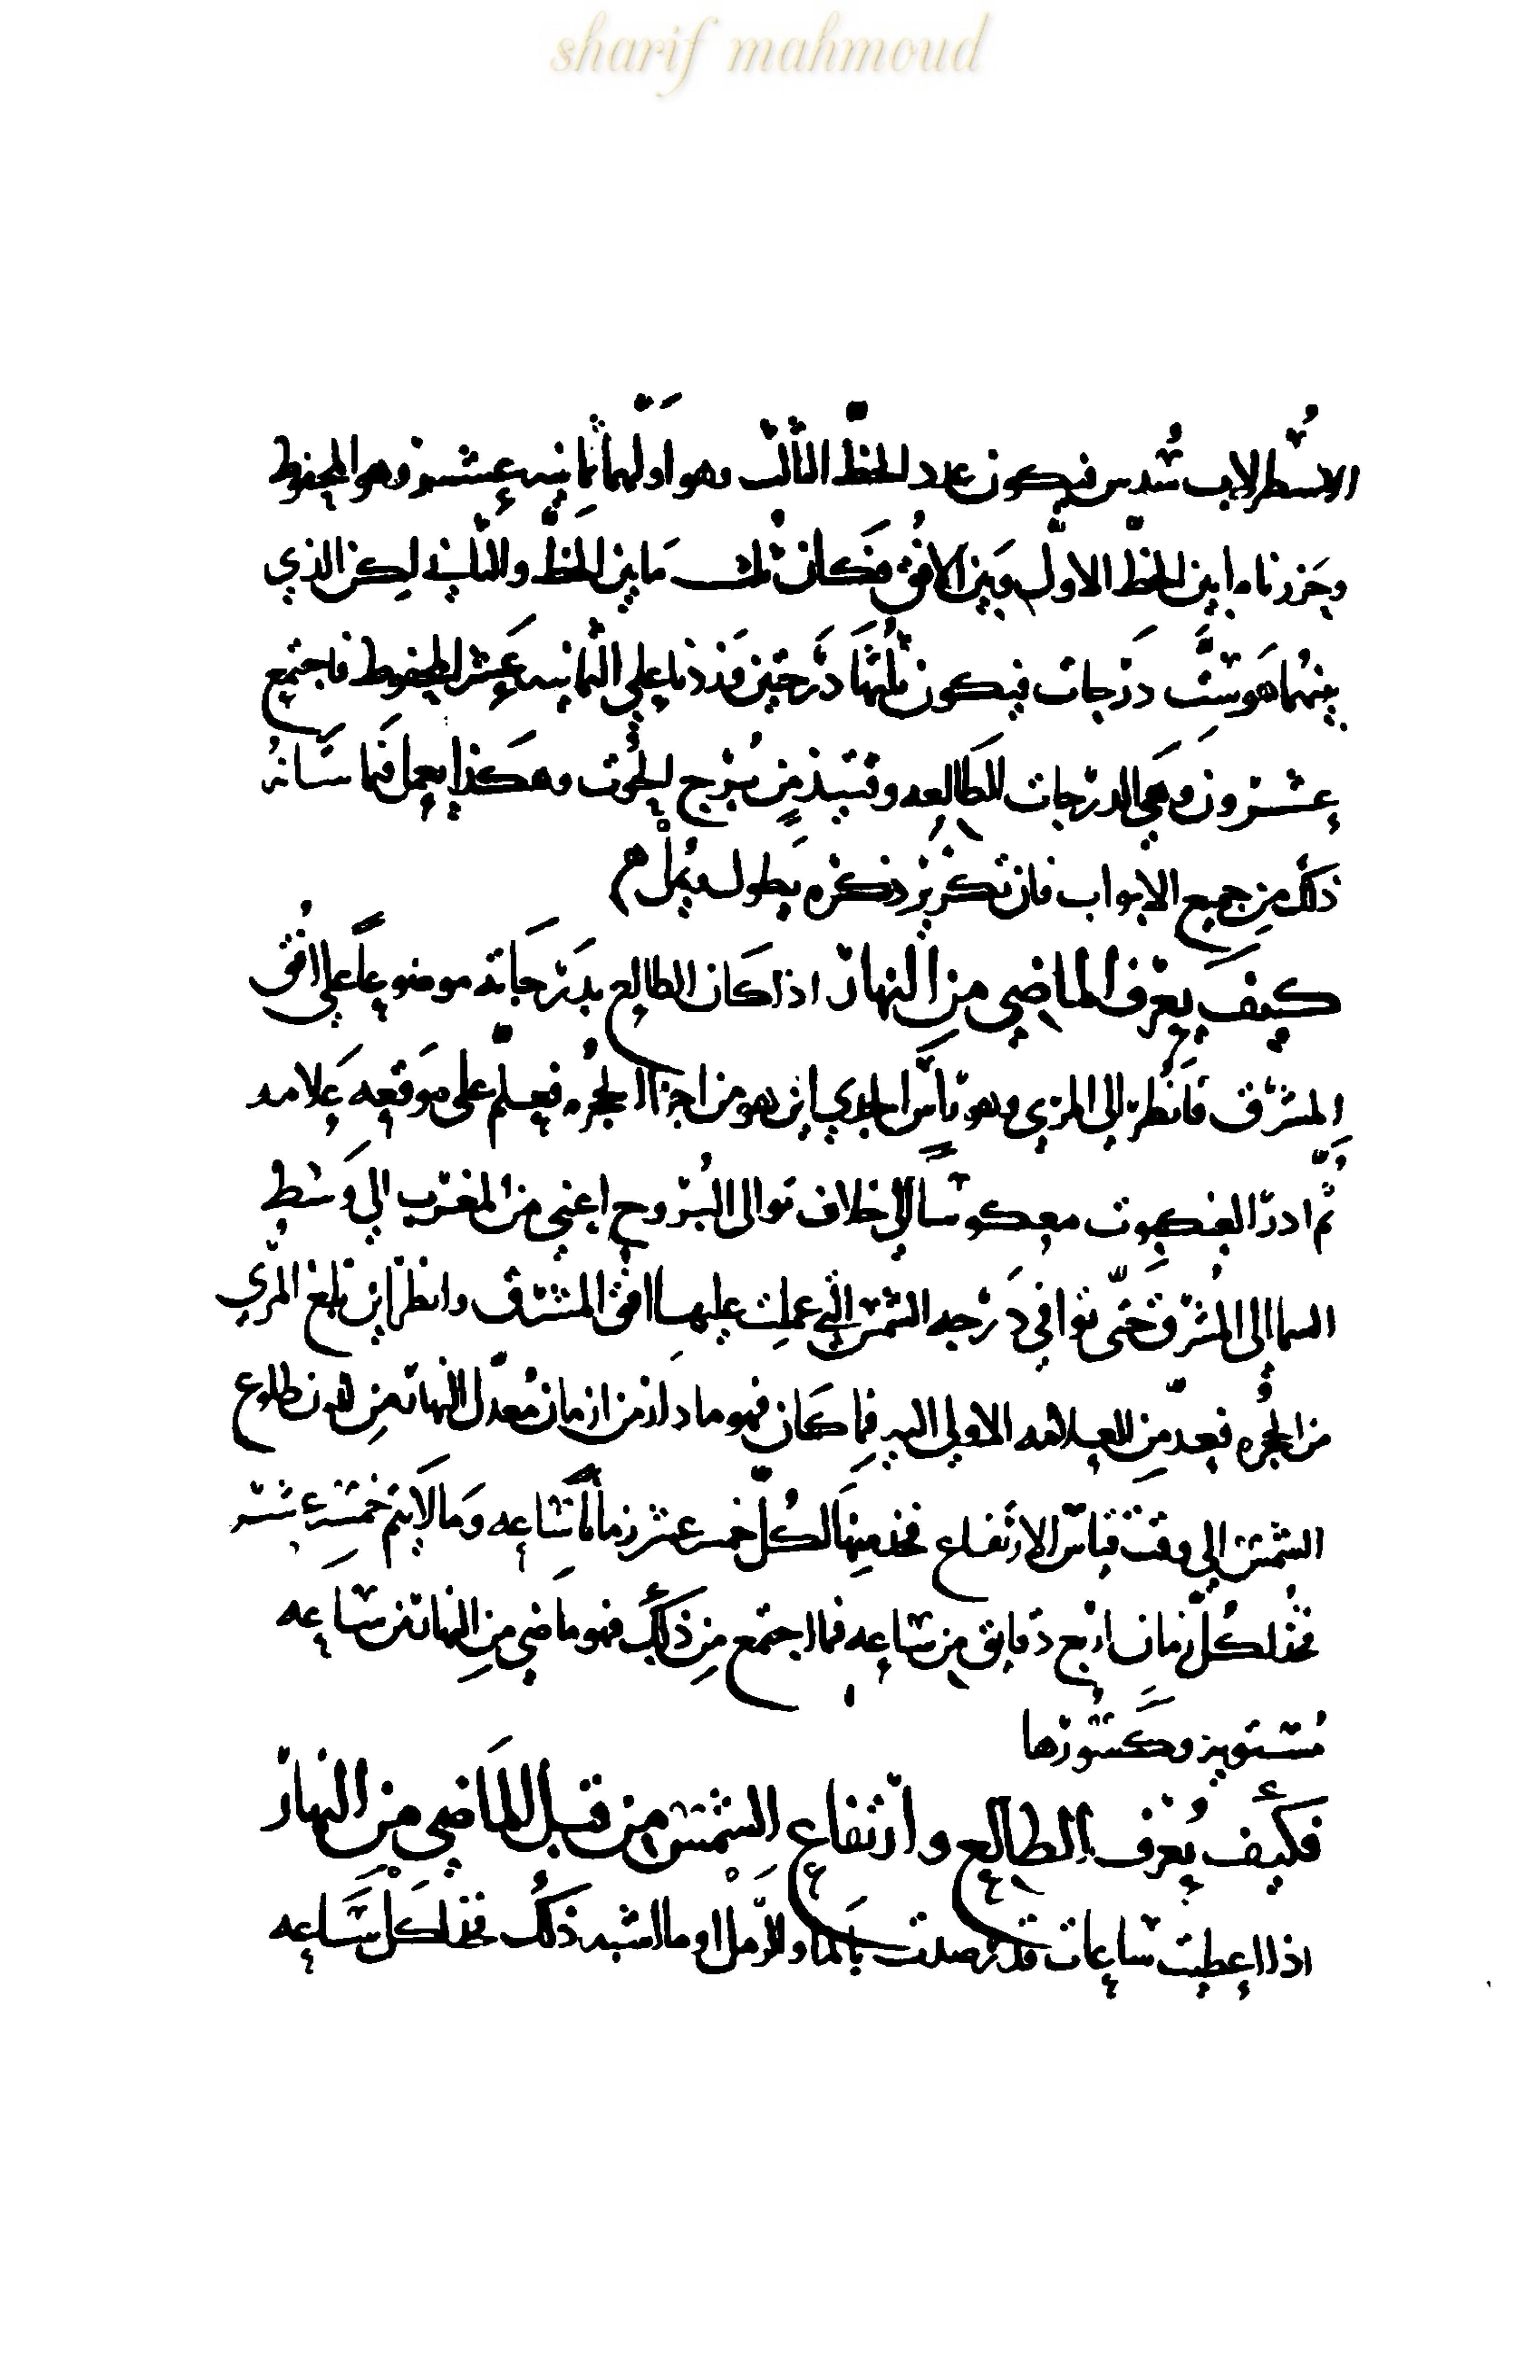 sharif mahmoud
الاسطرلاب سُدس فيكون عدد الخط الثالث وهو اولهما ثمانيه عشر وهو المحفوظ
وحزرنا ما بين الخطّ الاول وبَين الافُق فكان ثلث مَا بين الخطّ والثاني لكن الذي
بينهُما هَو سِتّ دَرجات فيكون ثلُثهَا دَرَجتين فزدنا علي الثمانيه عَشر المحفوظ فاجتمع
عِشرون وهي الدرجات الطَالعه وقتيذ مِن بُرج الحُوت وهَكذا يعمل فَما سَانهُ
ذَلك مِن جميع الابواب فان تكرير ذكره يَطول ويُملْ
كيف يعرَف الماضي مِن النهار اذا كَان الطالع بدَرَجَاته موضوعاً علي افُق
المشرق فَانظُر الي المرَي وهو رَاس الجدي اين هو من اجزا الحجُره فيعلّم علي مَوقعِه عَلامه
ثُمّ ادر العنكبوت معكوساً الي خلاف توالى البُروج اعني من المغرَب الي وَسَط
السما الي المُشرق حَتيّ توافي دَرَجه الشمس التي عملت عليها افق المشرق وانظر اين تلغ المرّي
من الحجُره فيعدّ مِن العلامه الاولي اليه فِما كَان فهو ما دار من ازمان مُعدّل النهار مِن لدن طلوع
الشمسِ الي وقت قياس الارتفاع فخذ مِنها لكُلّ خمس عشر زماناً سَاعِه وَما لَا يتم خمَسِه عشر
فخُذ لكُلّ زمان اربع دَقايق مِن سَاعِه فما اجتمع مِن ذَلِك فهو مَا ضي مِن النهار مِن سَاعِه
مُستوَيه وكَسُورها
فكَيفَ يُعرف الطالع وارتفاع الشمس مِن قبل المَاضي من النهار
اذا اعطيت ساعات قد رَصدت بالمَا والرّمل او ما اشبه ذَلك فخذ لكَل سَاعِه